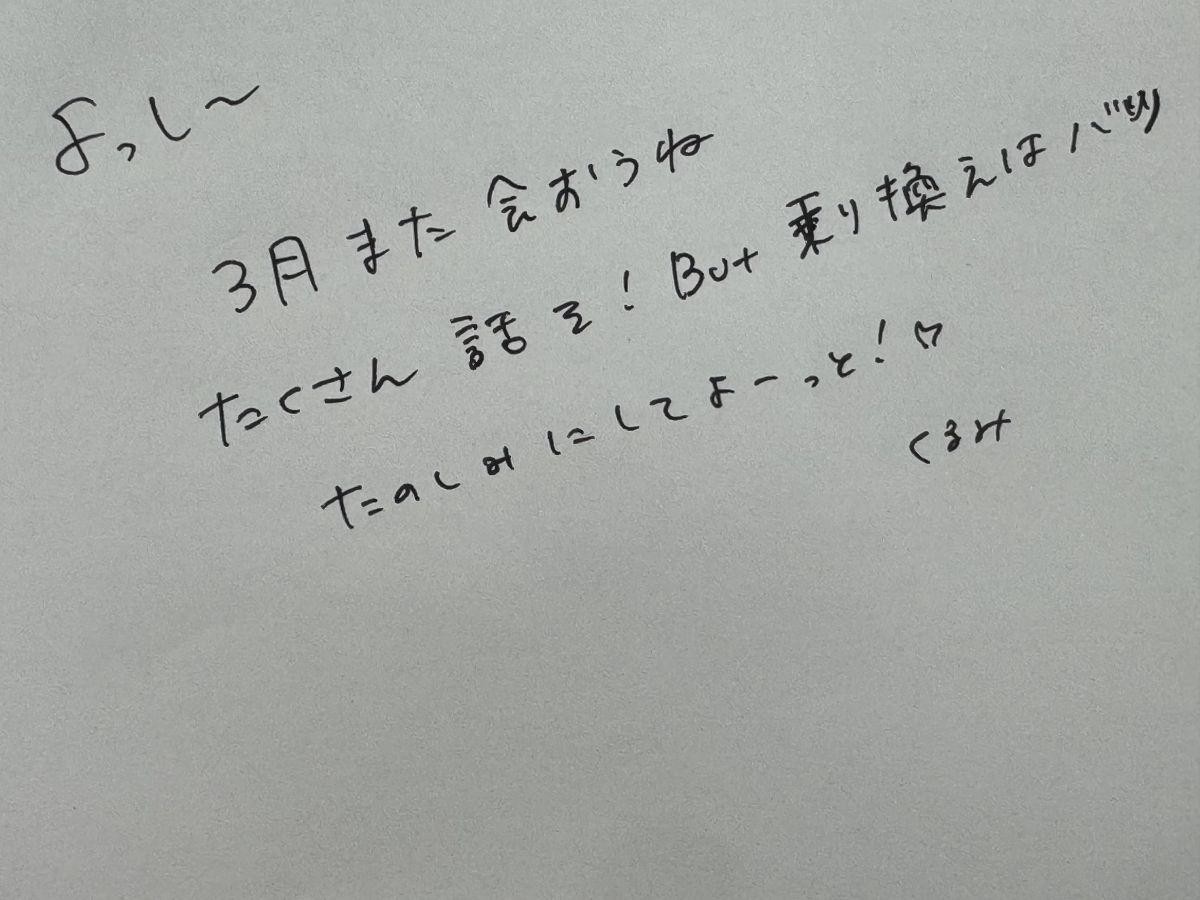 よっし〜
3月また会おうね
たくさん話そ!But 乗り換えはバツ
たのしみにしてよーっと!♡
くるみ